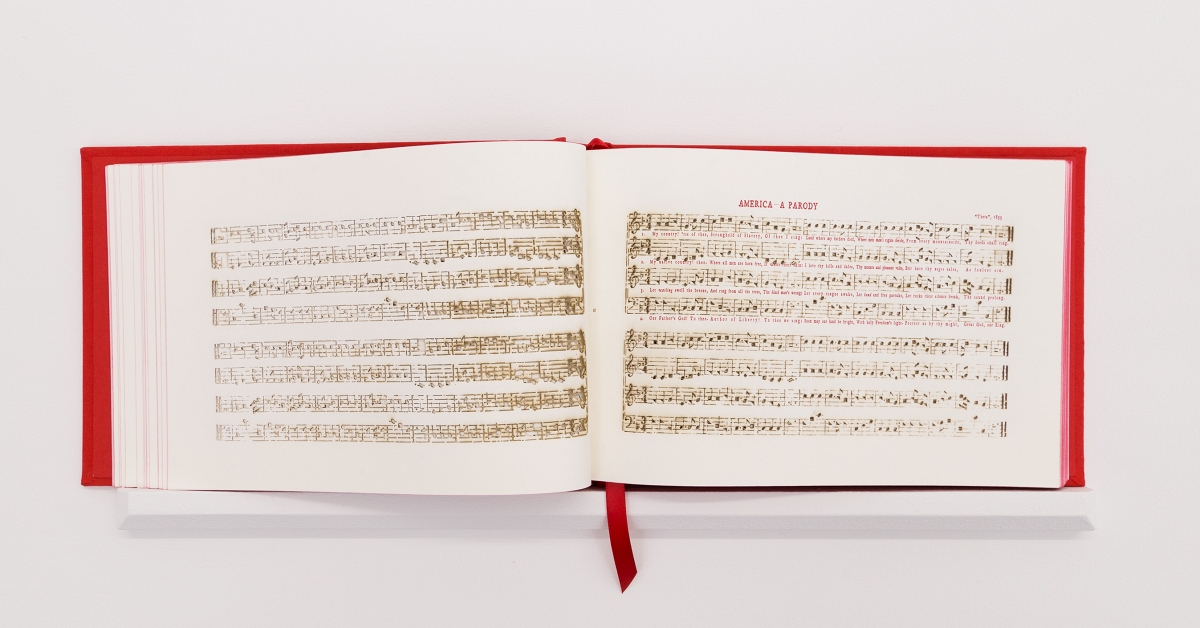 AMERICA—A PARODY
"Theta", 1839
1. My country! 'tis of thee, Stronghold of Slavery, Of thee I sing: Land where my fathers died, Where men man's rights deride, From every mountainside, Thy deeds shall ring.
2. My native country! thee- Where all men are born free, if I love thy hills and dales, Thy mounts and pleasant vales, But hate thy negro sales, As foulest
3. Let wailing swell the breeze, And ring from all the trees, The black man's wrong; Let every tongue awake, Let bond and free partake, Let rocks their silence break, The sound prolong.
4. Our Father's God! To thee- Author of Liberty! To thee we sing; Soon may our land be bright, With holy Freedom's light- Protect us by thy might, Great God, our King.